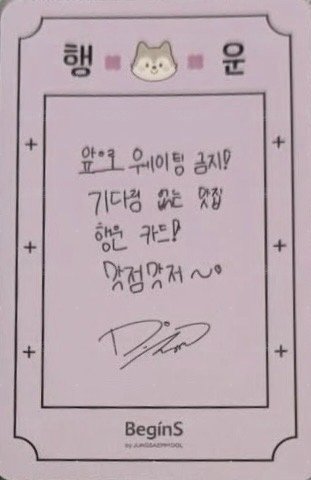 행 운
앞으로 웨이팅 금지!
기다림 없는 맛집
행운 카드!
맛점맛저~。
BeginS
by JUNGSAEMMOOL